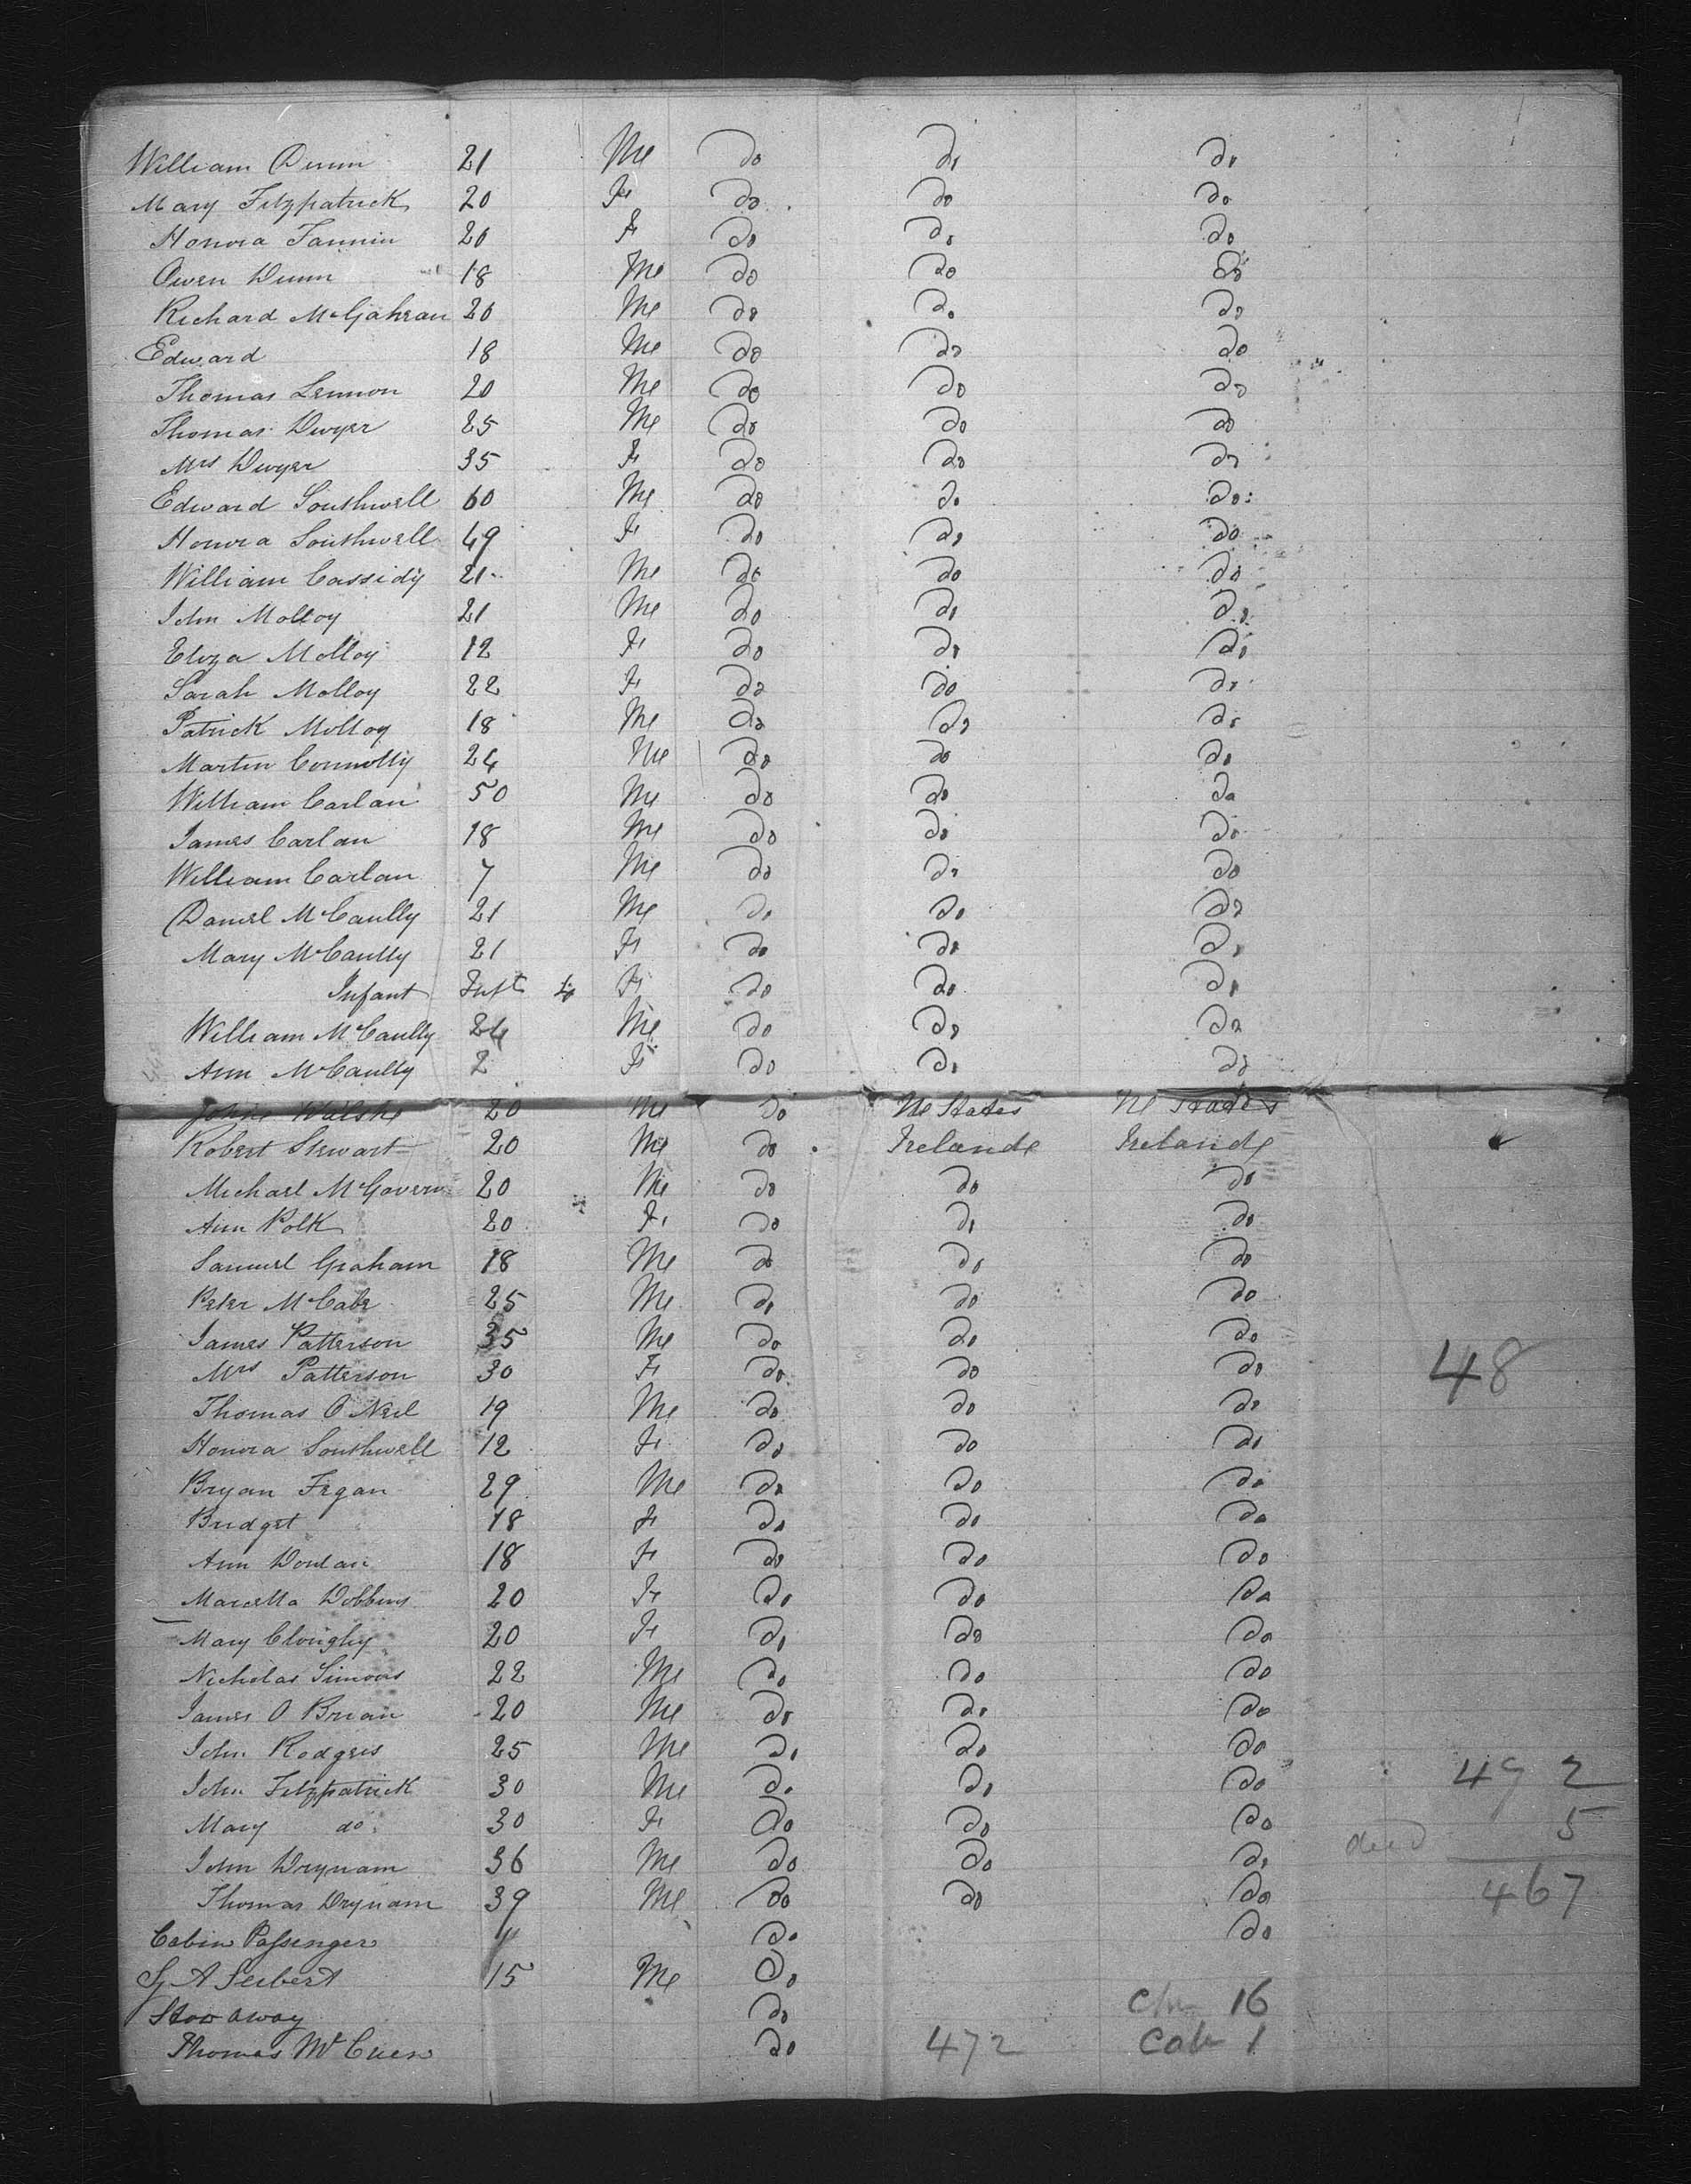 William Dunn 21 Me Do Do Do
Mary Fitzpatrick 20 Fe Do Do Do
Honora Fannin 20 Fe Do Do Do
Owen Dunn 18 Me Do Do Do
Richard McGahran 20 Me Do Do Do
Edward 18 Me Do Do Do
Thomas Lennon 20 Me Do Do Do
Thomas Dwyer 25 Me Do Do Do
Mrs Dwyer 35 Fe Do Do Do
Edward Southwell 60 Me Do Do Do
Honora Southwell 49 Fe Do Do Do
William Cassidy 21 Me Do Do Do
John Molloy 21 Me Do Do Do
Eliza Molloy 12 Fe Do Do Do
Sarah Molloy 22 Fe Do Do Do
Patrick Molloy 18 Me Do Do Do
Martin Connolly 24 Me Do Do Do
William Carlan 50 Me Do Do Do
James Carlan 18 Me Do Do Do
William Carlan 7 Me Do Do Do
Daniel McCaully 21 Me Do Do Do
Mary McCaully 21 Fe Do Do Do
Infant Inft 4 Fe Do Do Do
William McCaully 24 Me Do Do Do
Ann McCaully 2 Fe Do Do Do
Walshe 20 Me Do Ue States Ue States
Robert Stewart 20 Me Do Irelande Irelande
Michael McGovern 20 Me Do Do Do
Ann Polk 20 Fe Do Do Do
Samuel Graham 18 Me Do Do Do
Peter McCabe 25 Me Do Do Do
James Patterson 35 Me Do Do Do
Mrs Patterson 30 Fe Do Do Do 48
Thomas O Neil 19 Me Do Do Do
Honora Southwell 12 Fe Do Do Do
Bryan Fegan 29 Me Do Do Do
Bridget 18 Fe Do Do Do
Ann Donlan 18 Fe Do Do Do
Marcella Dobbins 20 Fe Do Do Do
Mary Cloughy 20 Fe Do Do Do
Nicholas Simons 22 Me Do Do Do
James O Brian 20 Me Do Do Do
John Rodgers 25 Me Do Do Do
John Fitzpatrick 30 Me Do Do Do 492
Mary do 30 Fe Do Do Do dead 5
John Drynam 36 Me Do Do Do
Thomas Drynam 39 Me Do Do Do 467
Cabin Passenger " Do Do
G A Seibert 15 Me Do
Stow away Do Chn 16
Thomas McCuen Do 472 Cab 1